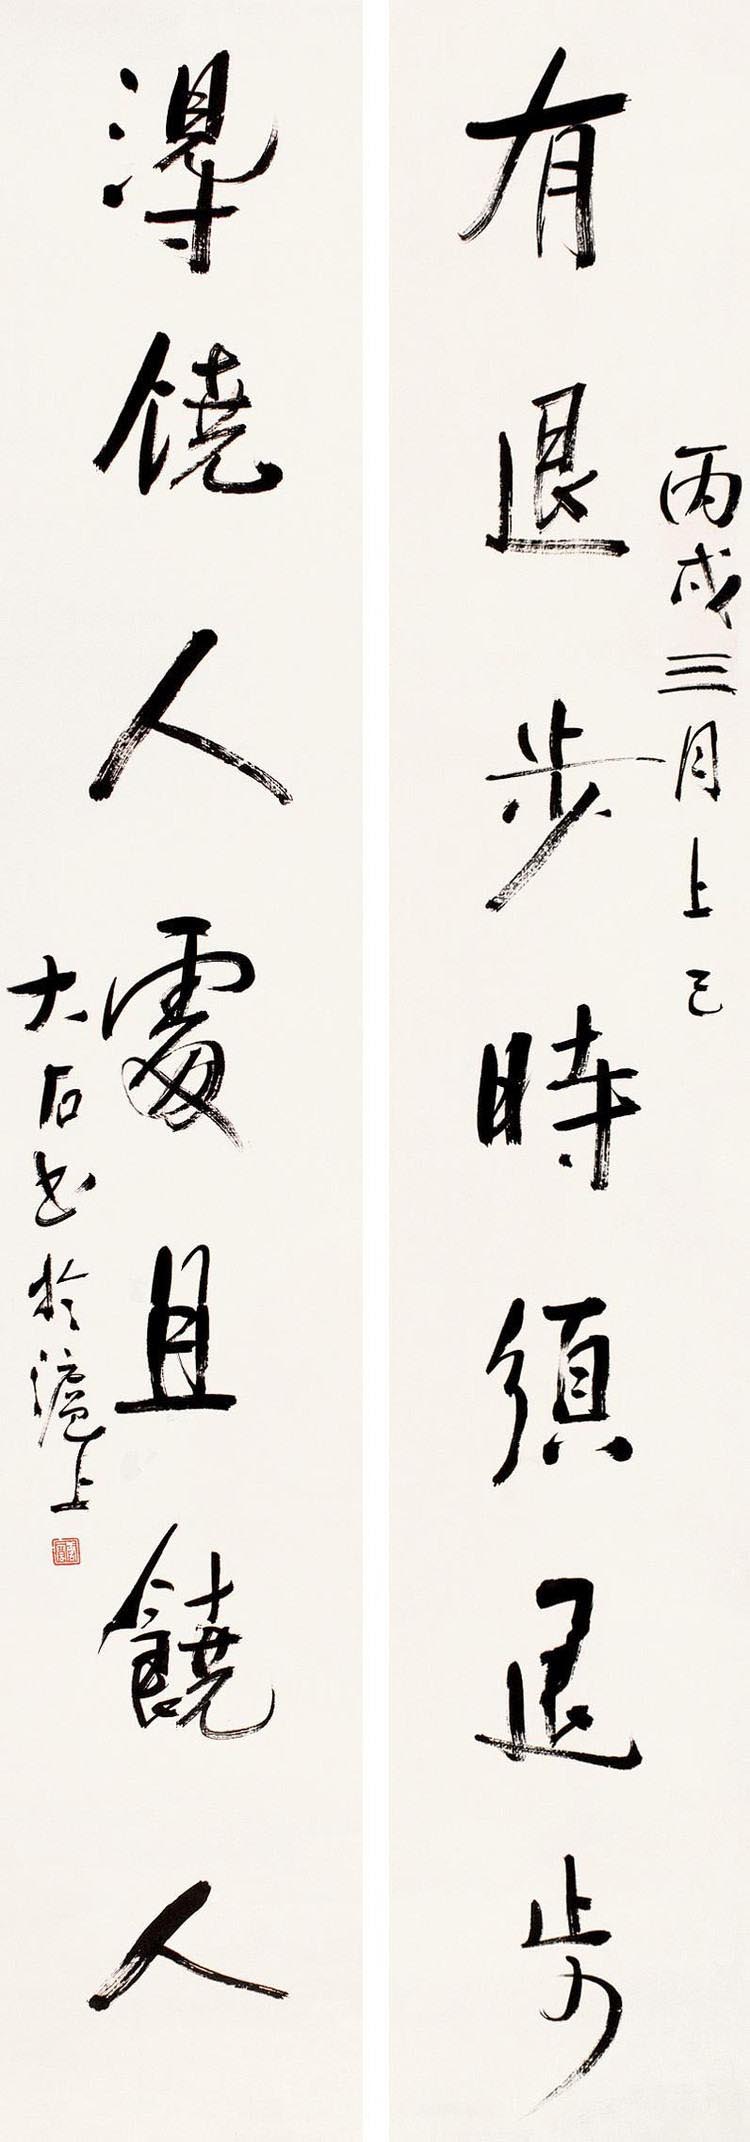 丙戌三月上巳
有退步時須退步
得饶人處且饒人
大石書於滬上